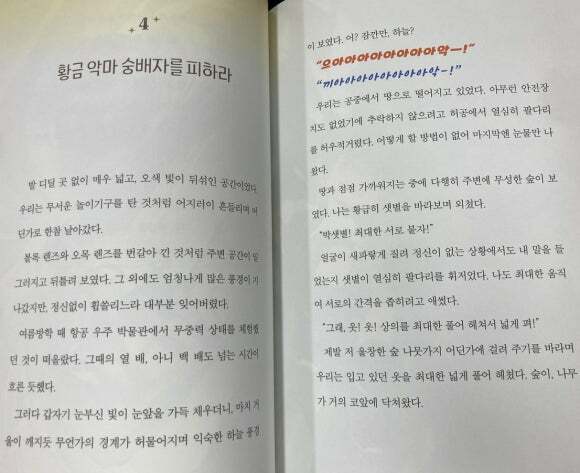 4
황금 악마 숭배자를 피하라
발 디딜 곳 없이 매우 넓고, 오색 빛이 뒤섞인 공간이었다.
우리는 무서운 놀이기구를 탄 것처럼 어지러이 흔들리며 어
딘가로 한참 날아갔다.
볼록 렌즈와 오목 렌즈를 번갈아 낀 것처럼 주변 공간이 일
그러지고 뒤틀려 보였다. 그 외에도 엄청나게 많은 풍경이 지
나갔지만, 정신없이 휩쓸리느라 대부분 잊어버렸다.
여름방학 때 항공 우주 박물관에서 무중력 상태를 체험했
던 것이 떠올랐다. 그때의 열 배, 아니 백 배도 넘는 시간이
흐른 듯했다.
그러다 갑자기 눈부신 빛이 눈앞을 가득 채우더니, 마치 거
울이 깨지듯 무언가의 경계가 허물어지며 익숙한 하늘 풍경
이 보였다. 어? 잠깐만, 하늘?
“으아아아아아아아아악—!”
“끼아아아아아아아아악-!”
우리는 공중에서 땅으로 떨어지고 있었다. 아무런 안전장
치도 없었기에 추락하지 않으려고 허공에서 열심히 팔다리
를 허우적거렸다. 어떻게 할 방법이 없어 마지막엔 눈물만 나
왔다.
땅과 점점 가까워지는 중에 다행히 주변에 무성한 숲이 보
였다. 나는 황급히 샛별을 바라보며 외쳤다.
“박샛별! 최대한 서로 붙자!”
얼굴이 새파랗게 질려 정신이 없는 상황에서도 내 말을 들
었는지 샛별이 열심히 팔다리를 휘저었다. 나도 최대한 움직
여 서로의 간격을 좁히려고 애썼다.
“그래, 옷! 옷! 상의를 최대한 풀어 헤쳐서 넓게 펴!”
제발 저 울창한 숲 나뭇가지 어딘가에 걸려 주기를 바라며
우리는 입고 있던 옷을 최대한 넓게 풀어 헤쳤다. 숲이, 나무
가 거의 코앞에 닥쳐왔다.